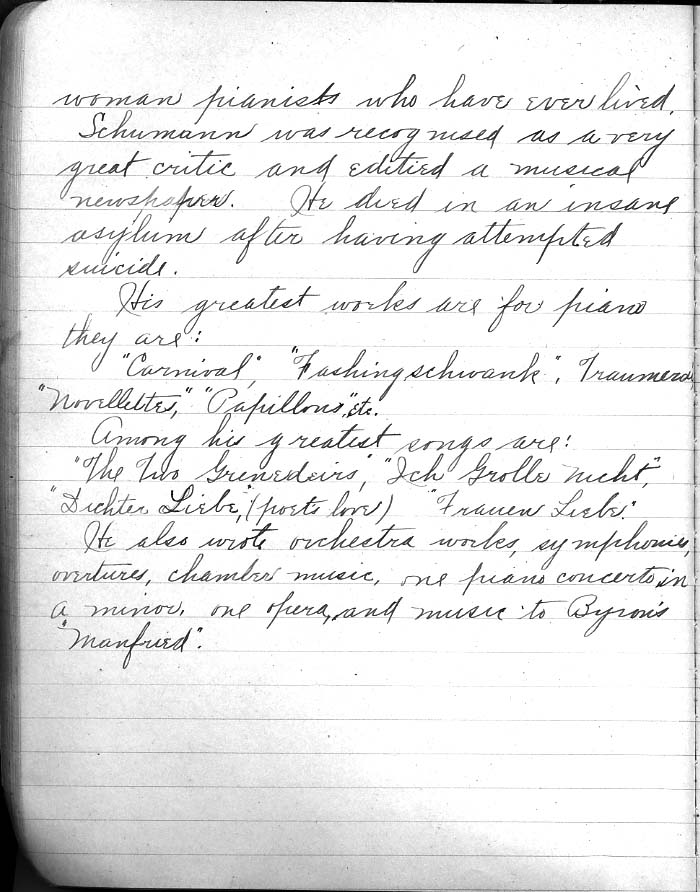 woman pianists who have ever lived.
Schumann was recognised as a very
great critic and editied a musical
newspaper. He died in an insane
asylum after having attempted
suicide.
His greatest works are for piano
they are:
"Carnival", "Fashingschwank", Traumerai,
"Novellettes," "Papillons", etc.
Among his greatest songs are:
"The Two Grenedeirs", "Ich Grolle Nicht",
"Dichter Liebe", (poets love) "Frauen Liebe".
He also wrote orchestra works, symphonies,
overtures, chamber music, one piano concerto in
a minor, one opera, and music to Byron's
"Manfried".